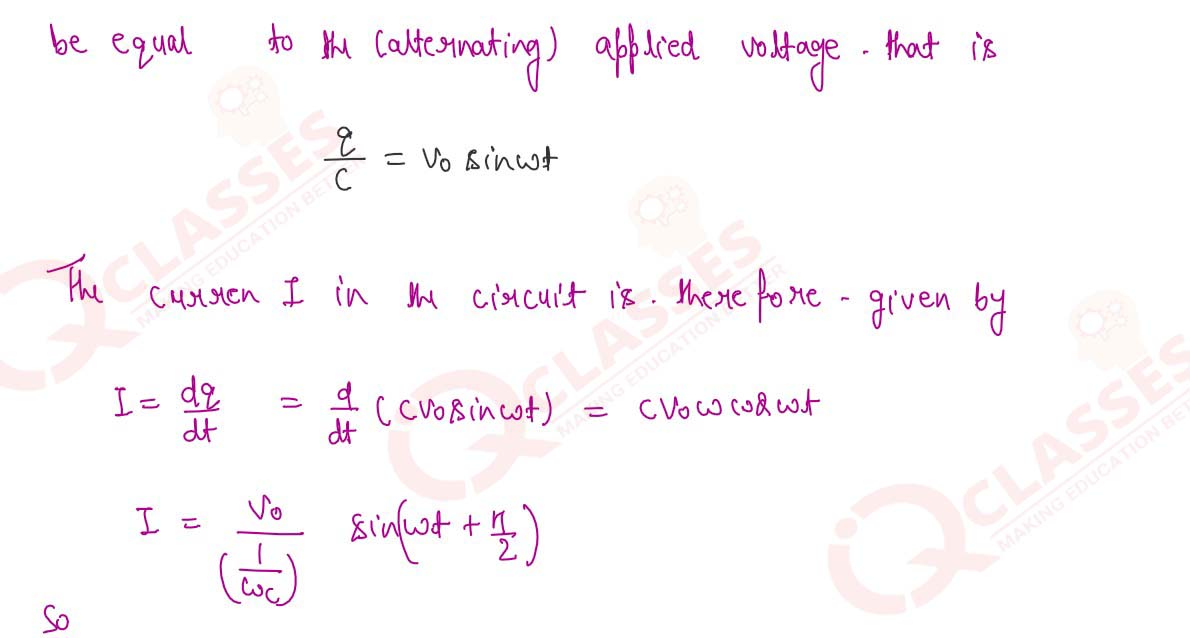 be equal to the (alternating) applied voltage. that is
q/C = V₀ sinωt
The curren I in the circuit is. therefore - given by
I = dq/dt = d/dt (CV₀sinωt) = CV₀ω cosωt
I = V₀/(1/ωC) sin(ωt + π/2)
So
CLASSES
MAKING EDUCATION BETTER
CLASSES
MAKING EDUCATION BETTER
CLASSES
MAKING EDUCATION BETTER